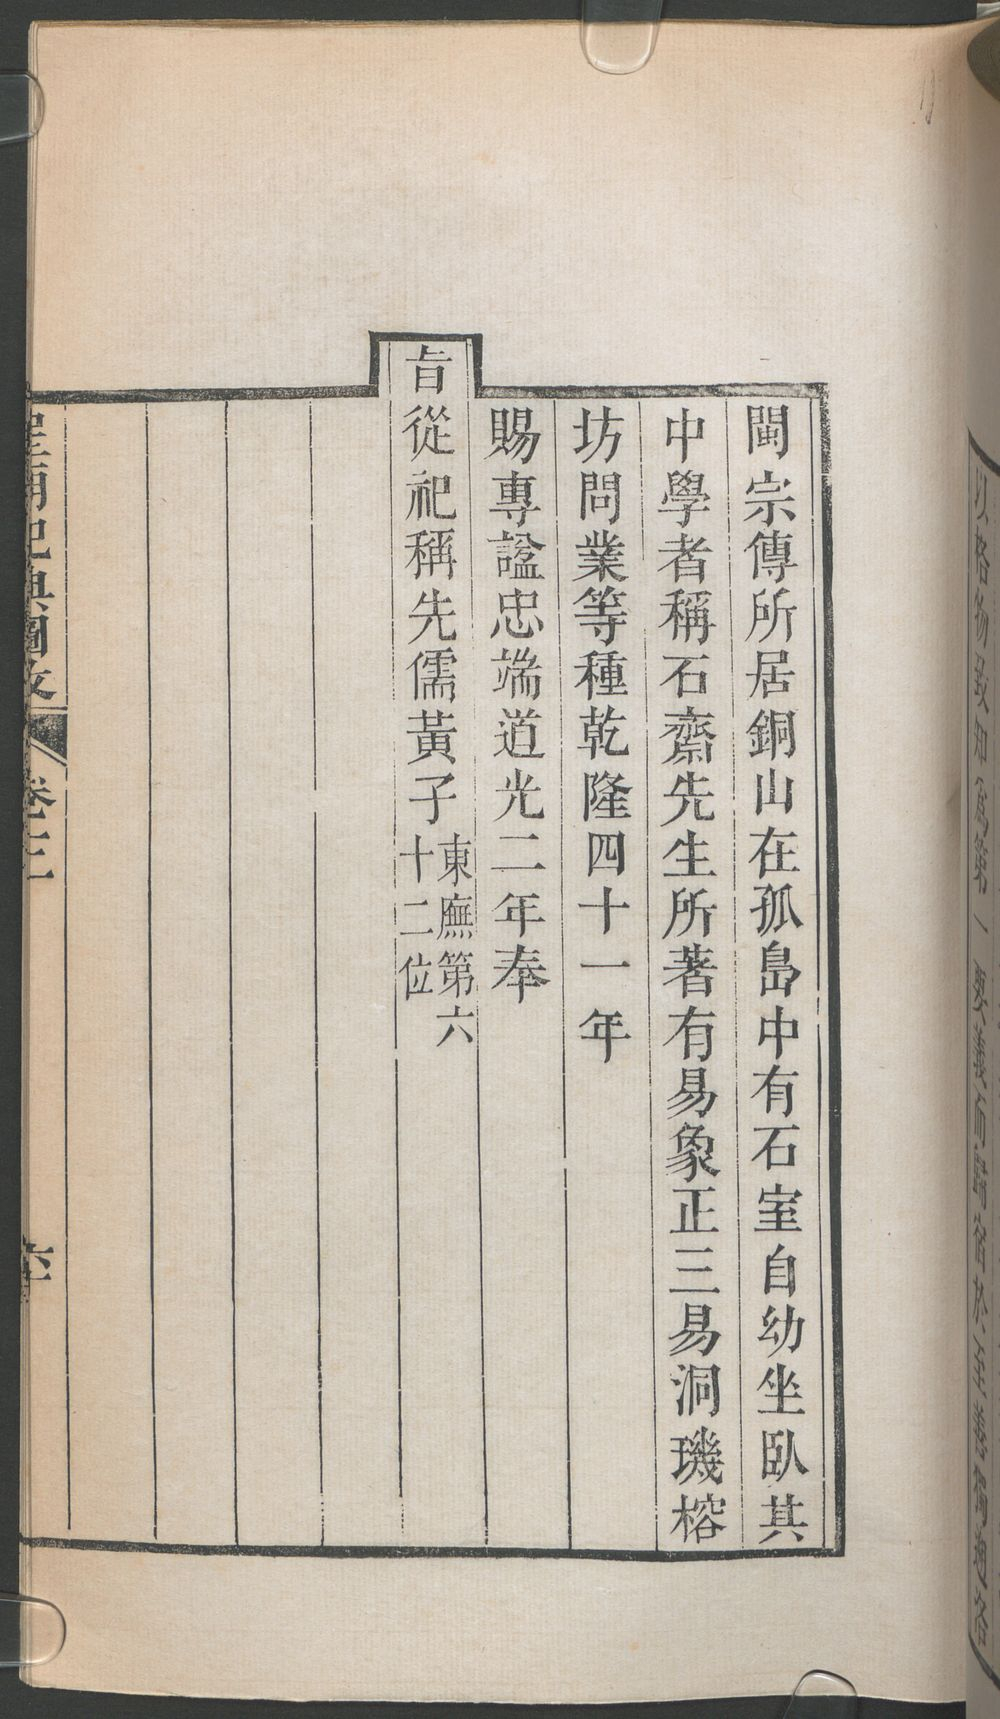 閩宗傳所居銅山在孤島中有石室自幼坐臥其
中學者稱石齋先生所著有易象正三易洞璣榕
坊問業等種乾隆四十一年
賜專諡忠端道光二年奉
旨從祀稱先儒黃子東廡第六十二位
卷三